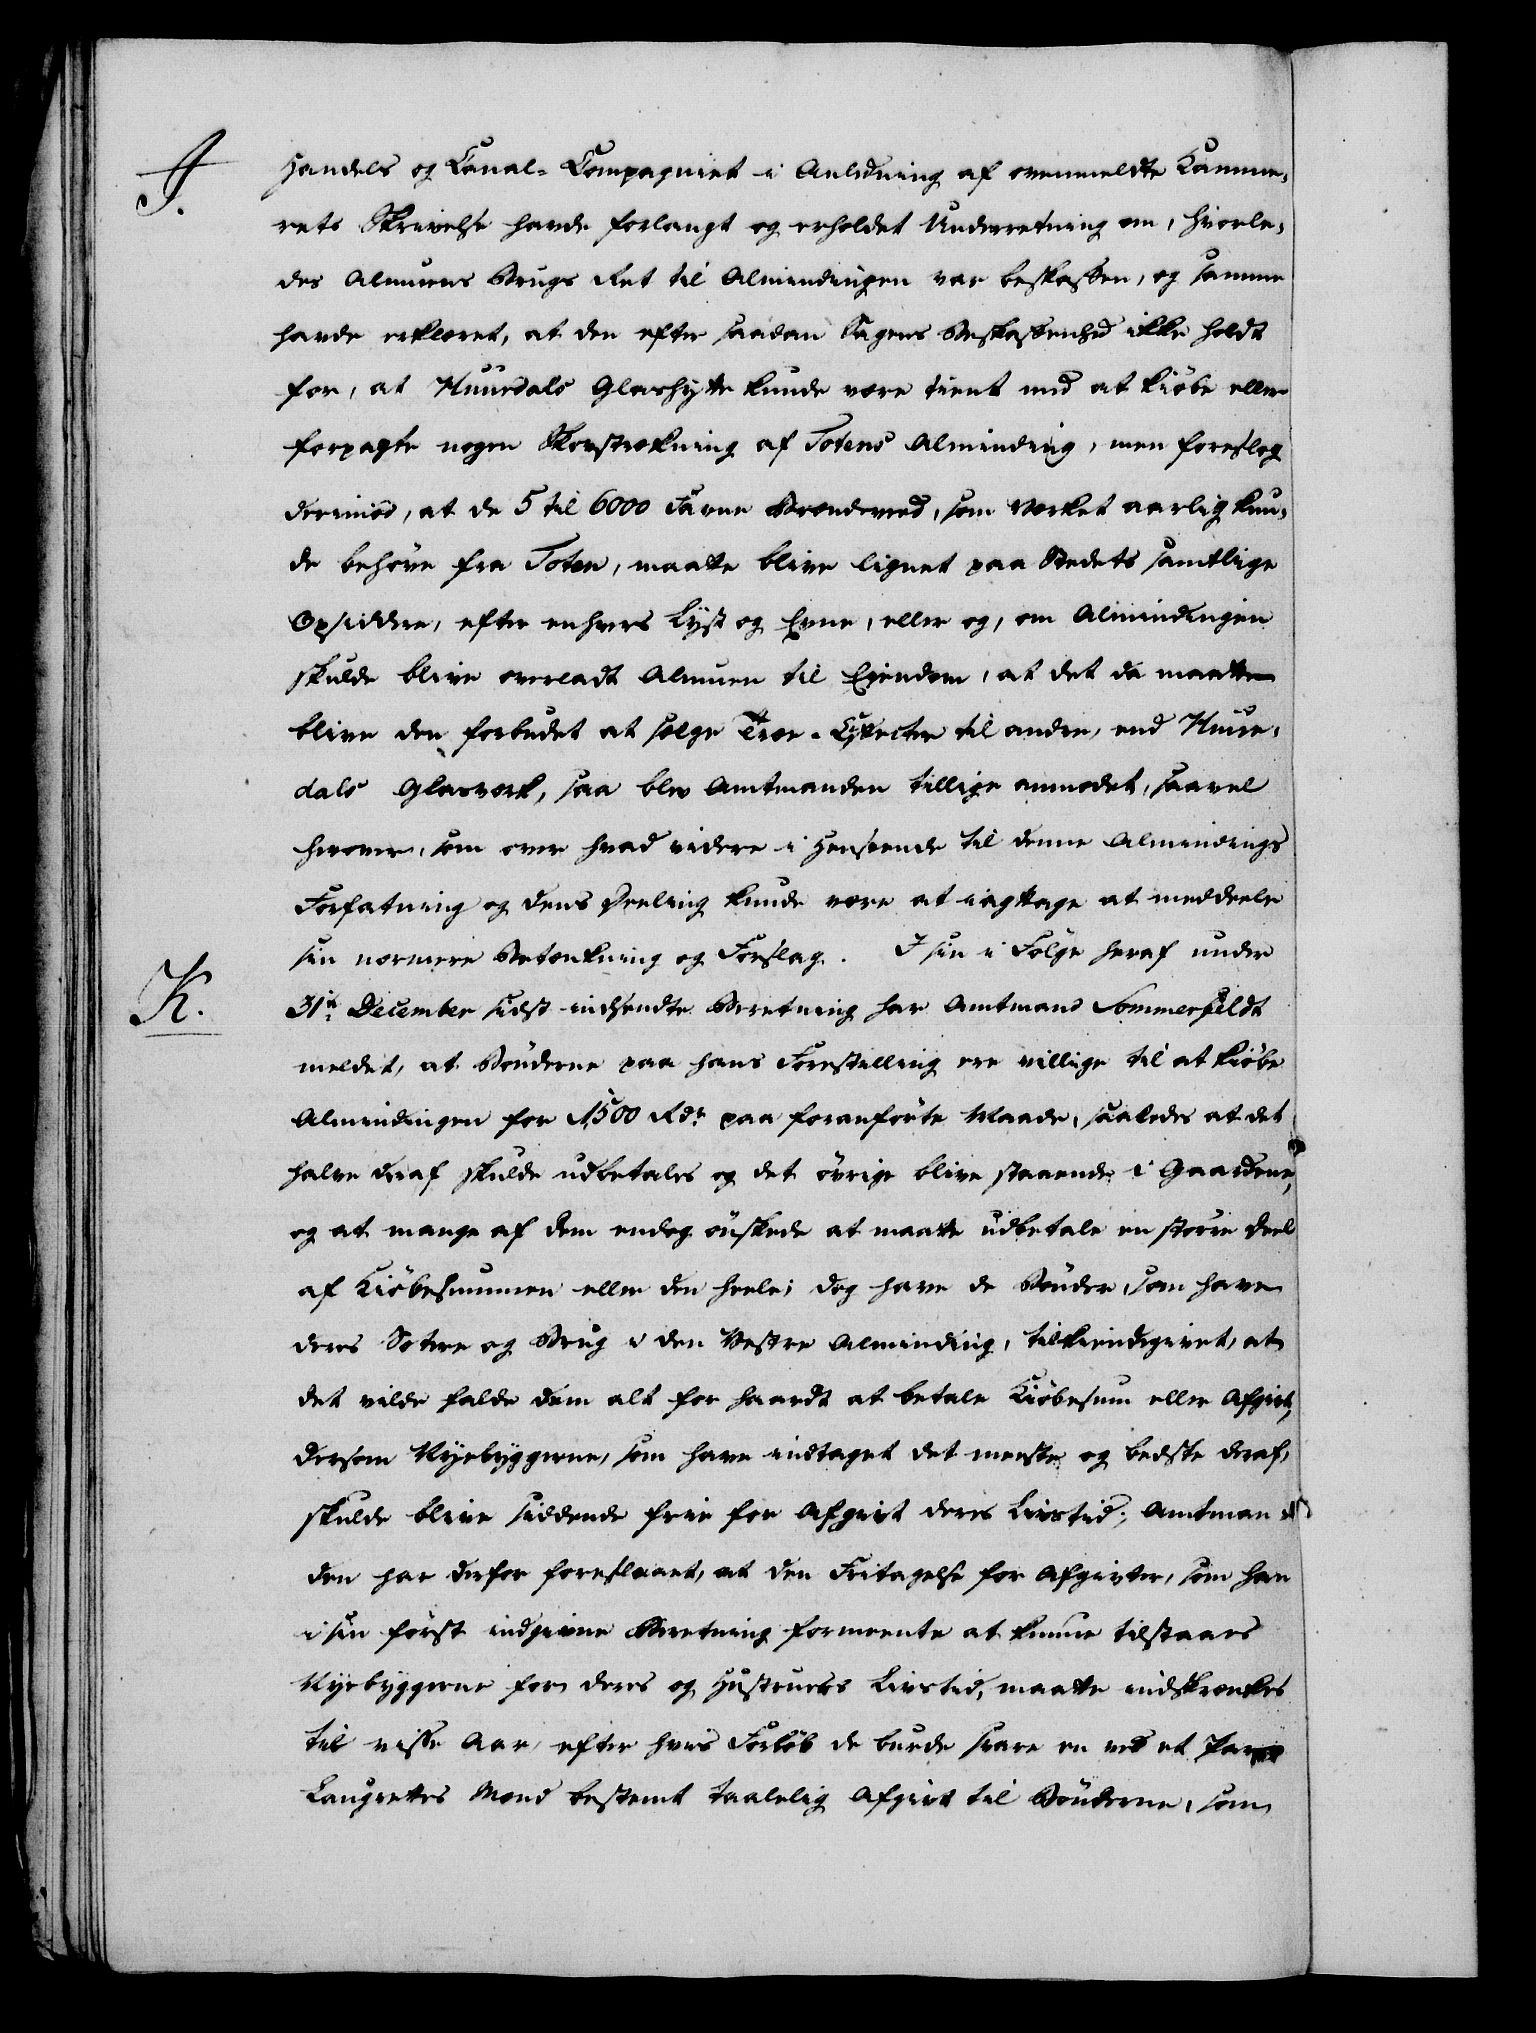 J.
Handels og Canal-Compagniet i Anledning af ovenmeldte Kamme-
rets Skrivelse havde forlangt og erholdet Underretning om, hvorle-
des Almuens Brugs Ret til Almindingen var beskaffen, og samme
havde erklæret, at den efter saadan Sagens Beskaffenhed ikke holdt
for, at Huurdals Glashytte kunde være tient med at kiøbe eller
forpagte nogen Skovstrekning af Totens Alminding, men foreslog
derimod, at de 5 til 6000 Favne Brændeved, som Værket aarlig kun-
de behøve fra Toten, maatte blive lignet paa Stedets samtlige
Opsiddere, efter enhvers Lyst og Evne, eller og, om Almindingen
skulde blive overladt Almuen til Eyendom, at det da maatte
blive den forbudet at sælge Træe-Effecter til andre, end Huur-
dals Glasværk, saa blev Amtmanden tillige anmodet, saavel
herover, som over hvad videre i Henseende til denne Almindings
Forfatning og dens Deeling kunde være at iagttage at meddeele
sin nærmere Betænkning og Forslag. I sin i Følge heraf under
K.
31te December sidst indsendte Beretning har Amtmand Sommerfeldt
meldet, at Bønderne paa hans Forestilling ere villige til at kiøbe
Almindingen for 1500 Rdr paa foranførte Maade, saaledes at det
halve deraf skulde udbetales og det øvrige blive staaende i Gaardene,
og at mange af dem endog ønskede at maatte udbetale en større Deel
af Kiøbesummen eller den heele; dog have de Bønder, som have
deres Sætre og Brug i den Vestre Alminding, tilkiendegivet, at
det vilde falde dem alt for haardt at betale Kiøbesum eller Afgivt,
dersom Nyebyggerne, som have indtaget det meeste og bedste deraf,
skulde blive siddende frie for Afgivt deres Livstid; Amtman-
den har derfor foreslaaet, at den Fritagelse for Afgivter, som han
i sin først indgivne Beretning formeente at kunne tilstaaes
Nyebyggerne for deres og Hustruers Livstid, maatte indskrænkes
til visse Aar, efter hvis Forløb de burde svare en ved et Par
Laugrettes Mænd bestemt taalelig Afgivt til Bønderne, som